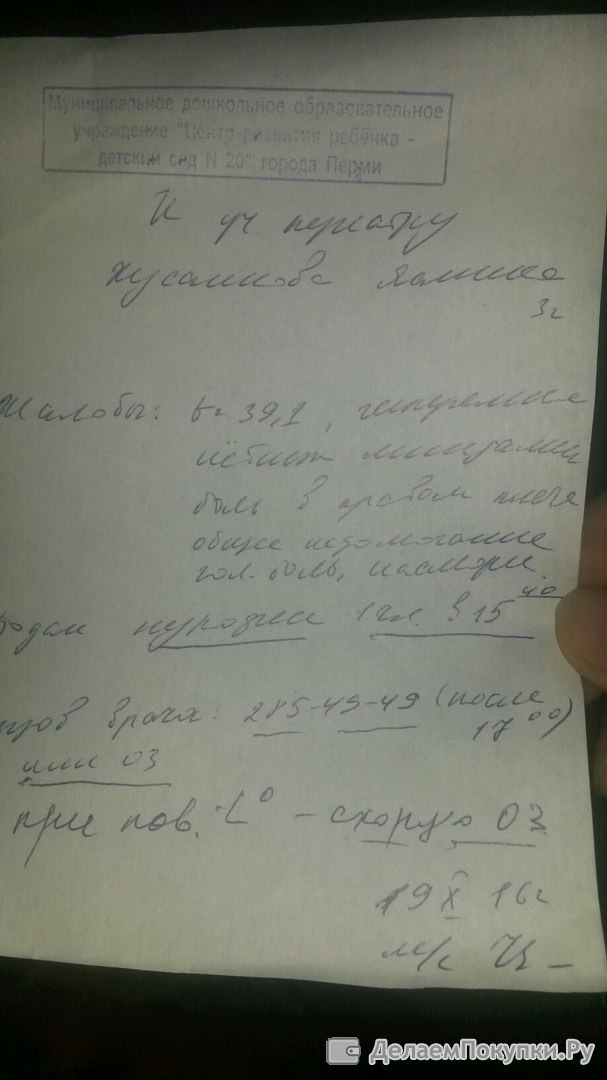 Муниципальное дошкольное образовательное
учреждение "Центр развития ребёнка -
детский сад N 20" города Перми
К уч. педиатру
Хусаинова
3г
Жалобы: t= 39,1, гиперемия
миндалин
боль в правом плече
общее недомогание
гол. боль, насморк
нурофен 1 в 15 40
врача: 285-49-49 (после
17 00)
или 03
при пов. t° - скорую 03
19 X 16г
м/с
ДелаемПокупки.Ру